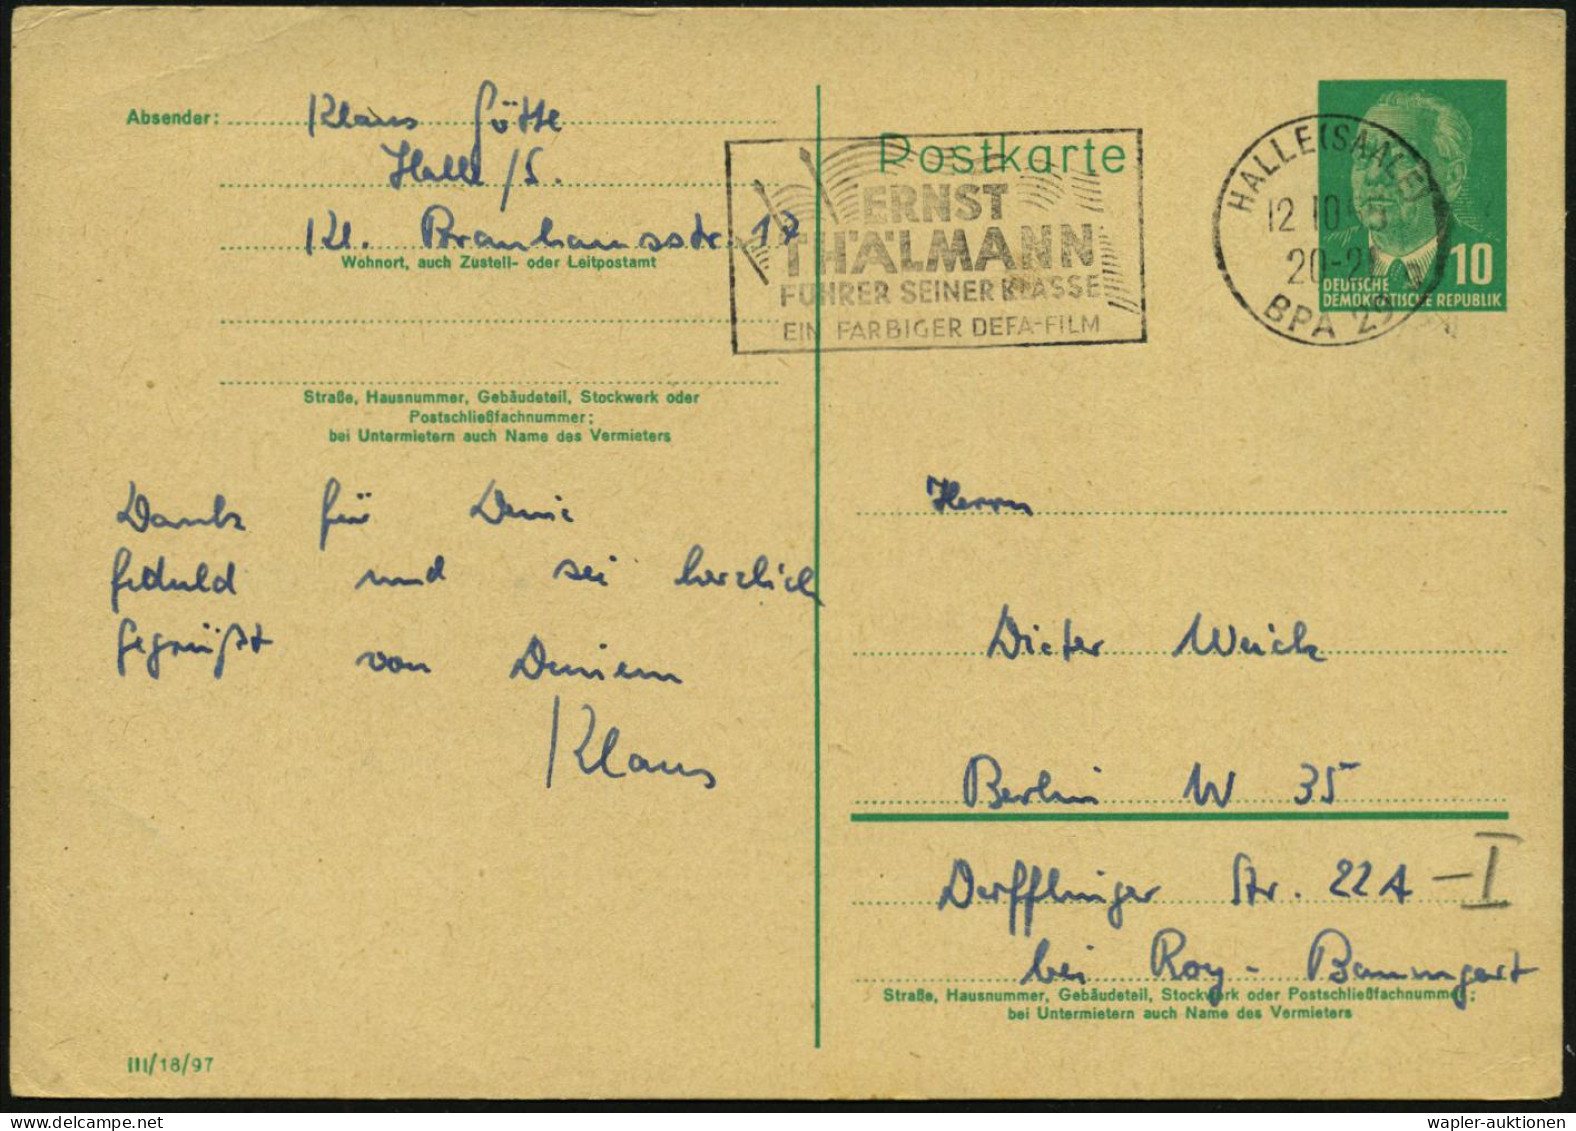 Absender: Klaus Götte
Halle/S.
Kl. Brauhausstr. 17
Wohnort, auch Zustell- oder Leitpostamt
Straße, Hausnummer, Gebäudeteil, Stockwerk oder
Postschließfachnummer;
bei Untermietern auch Name des Vermieters
Dank für Deine
Geduld und sei herzlich
gegrüßt von Deinem
Klaus
III/18/97
Postkarte
ERNST
THÄLMANN
FÜHRER SEINER KLASSE
EIN FARBIGER DEFA-FILM
HALLE (SAALE)
12 10
20-21
BPA 29
10
DEUTSCHE
DEMOKRATISCHE REPUBLIK
Herrn
Dieter Weick
Berlin W 35
Derfflinger Str. 22A - I
bei Roy-Baumgart
Straße, Hausnummer, Gebäudeteil, Stockwerk oder Postschließfachnummer;
bei Untermietern auch Name des Vermieters
wapler-auktionen